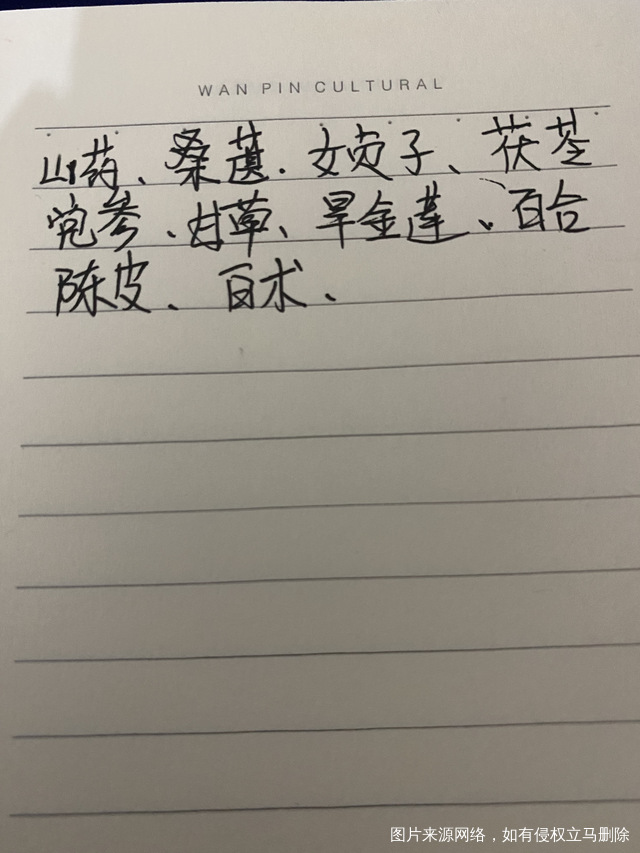 WAN PIN CULTURAL
山药、桑葚.女贞子、茯苓
党参、甘草、旱金莲、百合
陈皮、百术、
图片来源网络，如有侵权立马删除